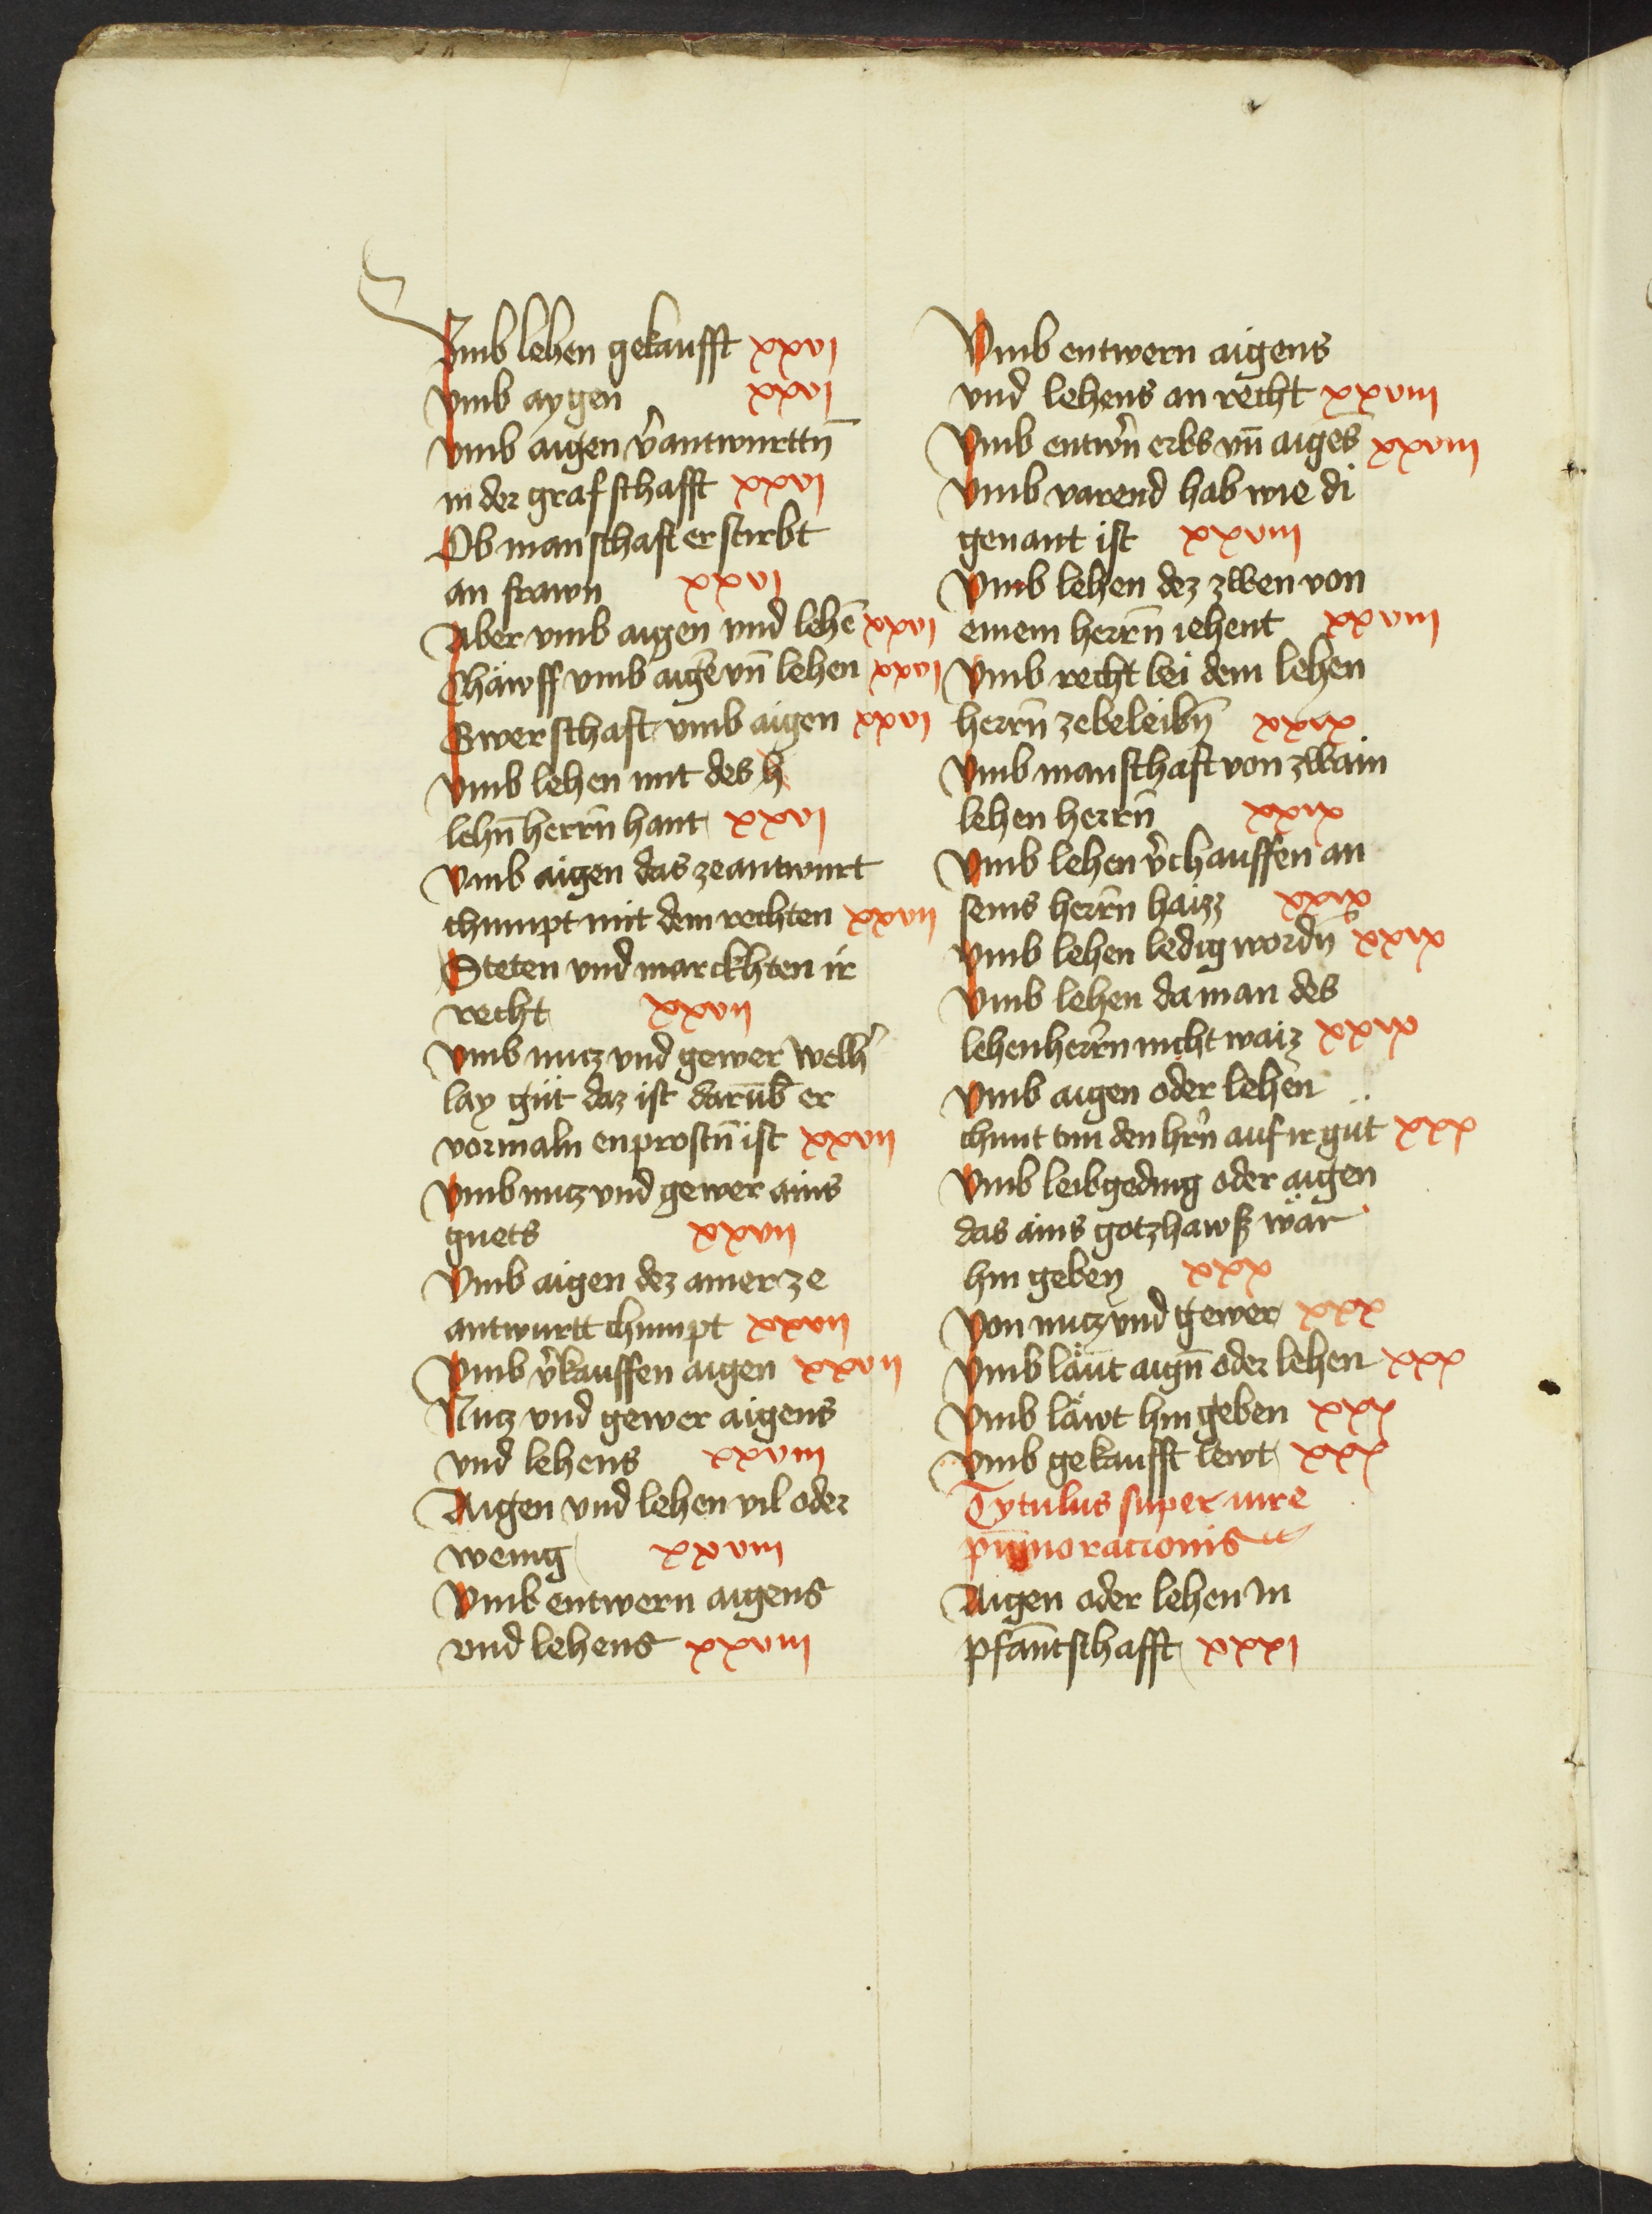 Vmb lehen gekaufft xxvi
Vmb aygen xxvi
Vmb aigen v̉antwurttn̄
in der grafschafft xxvi
Ob manschaft erstirbt
an frawn xxvi
Aber vmb aigen vnd lehē xxvi
Chäwff vmb aigē vn̄ lehen xxvi
Gwerschaft vmb aigen xxvi
Vmb lehen mit des h
lehn̄ herrn̄ hant xxvi
Vmb aigen das ze antwurt
chumpt mit dem rechten xxvii
Steten vnd marckhten ir
recht xxvii
Vmb nucz vnd gewer welh̉
lay güt daz ist darūb er
vormaln enprostn̄ ist xxvii
Vmb nucz vnd gewer ains
guets xxvii
Vmb aigen dez ainer ze
antwurtt chumpt xxvii
Vmb v̉kauffen aigen xxvii
Nucz vnd gewer aigens
vnd lehens xxviii
Aigen vnd lehen vil oder
wenig xxviii
Vmb entwern aigens
vnd lehens xxviii
Vmb entwern aigens
vnd lehens an recht xxviii
Vmb entwr̉n erbs vn̄ aigēs xxviii
Vmb varend hab wie di
genant ist xxviii
Vmb lehen dez zwen von
einem herrn̄ iehent xxviii
Vmb recht bei dem lehen
herrn̄ zebeleibn̄ xxix
Vmb manschaft von zwain
lehen herrn̄ xxix
Vmb lehen v̉chauffen an
seins herrn̄ haizz xxix
Vmb lehen ledig wordn̄ xxix
Vmb lehen da man des
lehenherrn̄ nicht waiz xxix
Vmb aigen oder lehen
chunt tun den hrn̉ auf ir güt xxx
Vmb leibgeding oder aigen
das ains gotzhawß wär
hin geben xxx
Von nucz vnd gewer xxx
Vmb läut aign̄ oder lehen xxx
Vmb läwt hin geben xxx
Vmb gekaufft lewt xxx
Tytulus super iure
pignoracionis
Aigen oder lehen in
pfantschafft xxxi